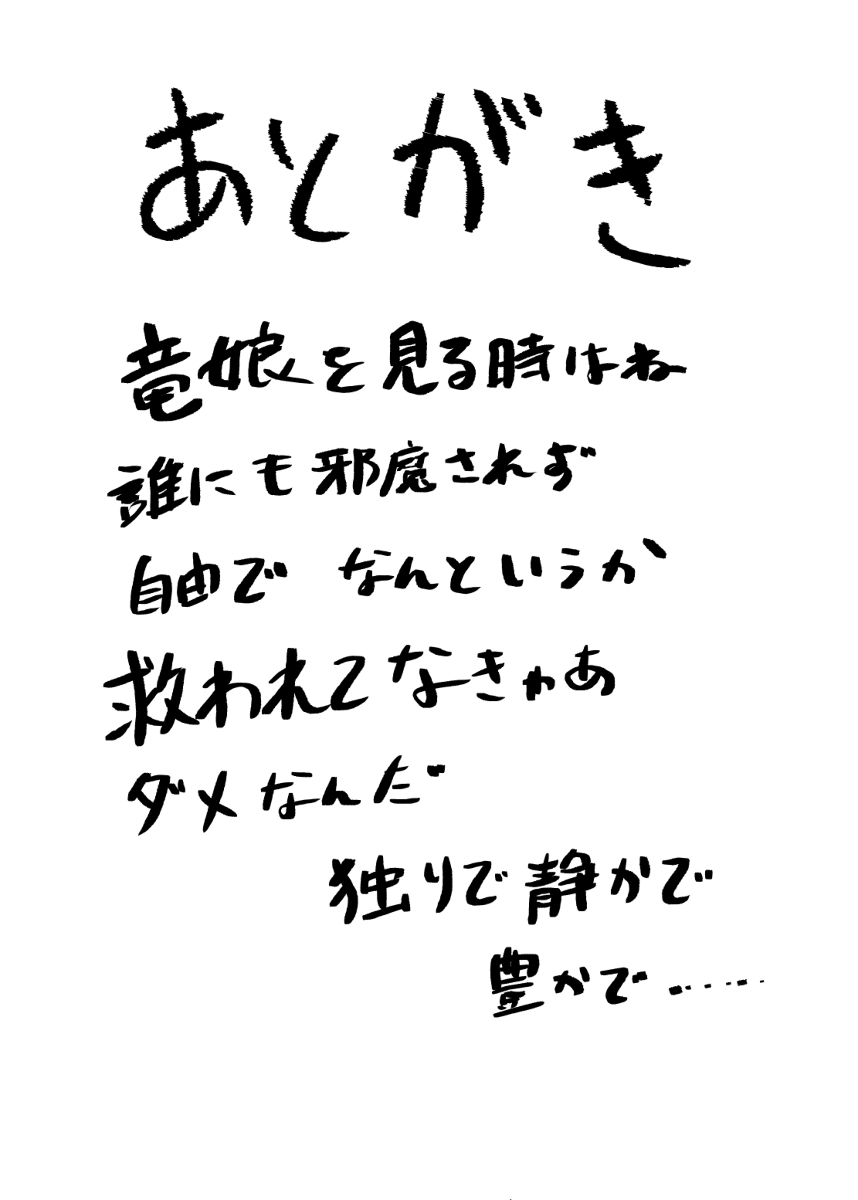 あとがき
竜娘を見る時はね
誰にも邪魔されず
自由で なんというか
救われてなきゃあ
ダメなんだ
独りで静かで
豊かで……